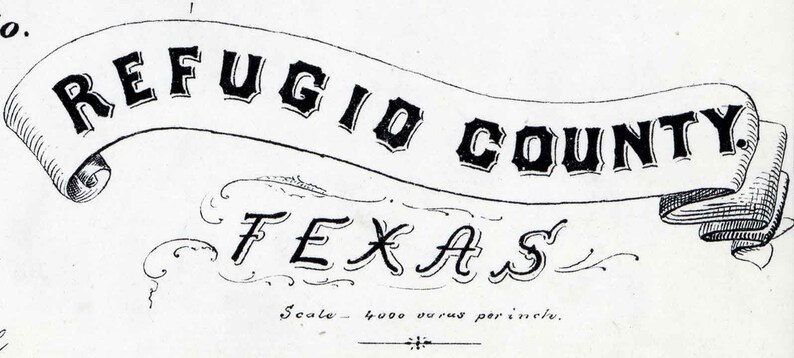 o.
REFUGIO COUNTY.
TEXAS
Scale – 4000 varas per inch.